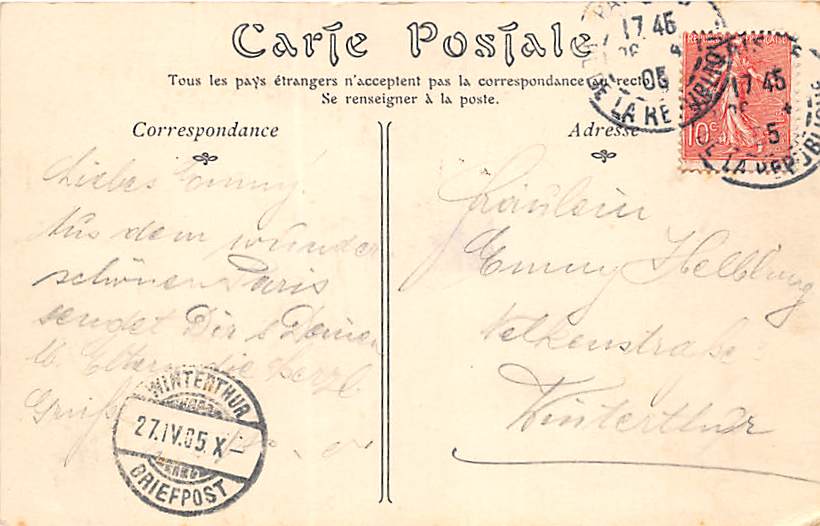 Carte Postale
Tous les pays étrangers n'acceptent pas la correspondance au recto
Se renseigner à la poste.
Correspondance
Adresse
Liebes Emmy!
Aus dem wunder
schönen Paris
sendet Dir & Deinen
lb. Eltern die herzl.
Grüße
Fräulein
Emmy Helbling
Nelkenstraße
Winterthur
10c
17 45
05
DE LA RE
17 45
5
DE LA REP UBLIQUE
WINTERTHUR
27.IV.05.X
BRIEFPOST